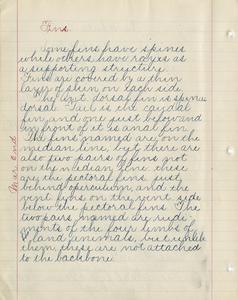 Fins.
Some fins have spines
while others have rays as
a supporting structure.
Fins are covered by a thin
layer of skin on each side.
The ant. dorsal fin is spinous
dorsal. Tail is the caudal
fin, and one just below and
in front of it is anal fin.
The fins named are on the
median line, but there are
also two pairs of fins not
on the median line. These
are the pectoral fins just
behind operculum, and the
vent fins on the vent side
below the pectoral fins. The
two pairs named are rudi-
ments of the four limbs of
land animals, but unlike
them, these are not attached
to the backbone.